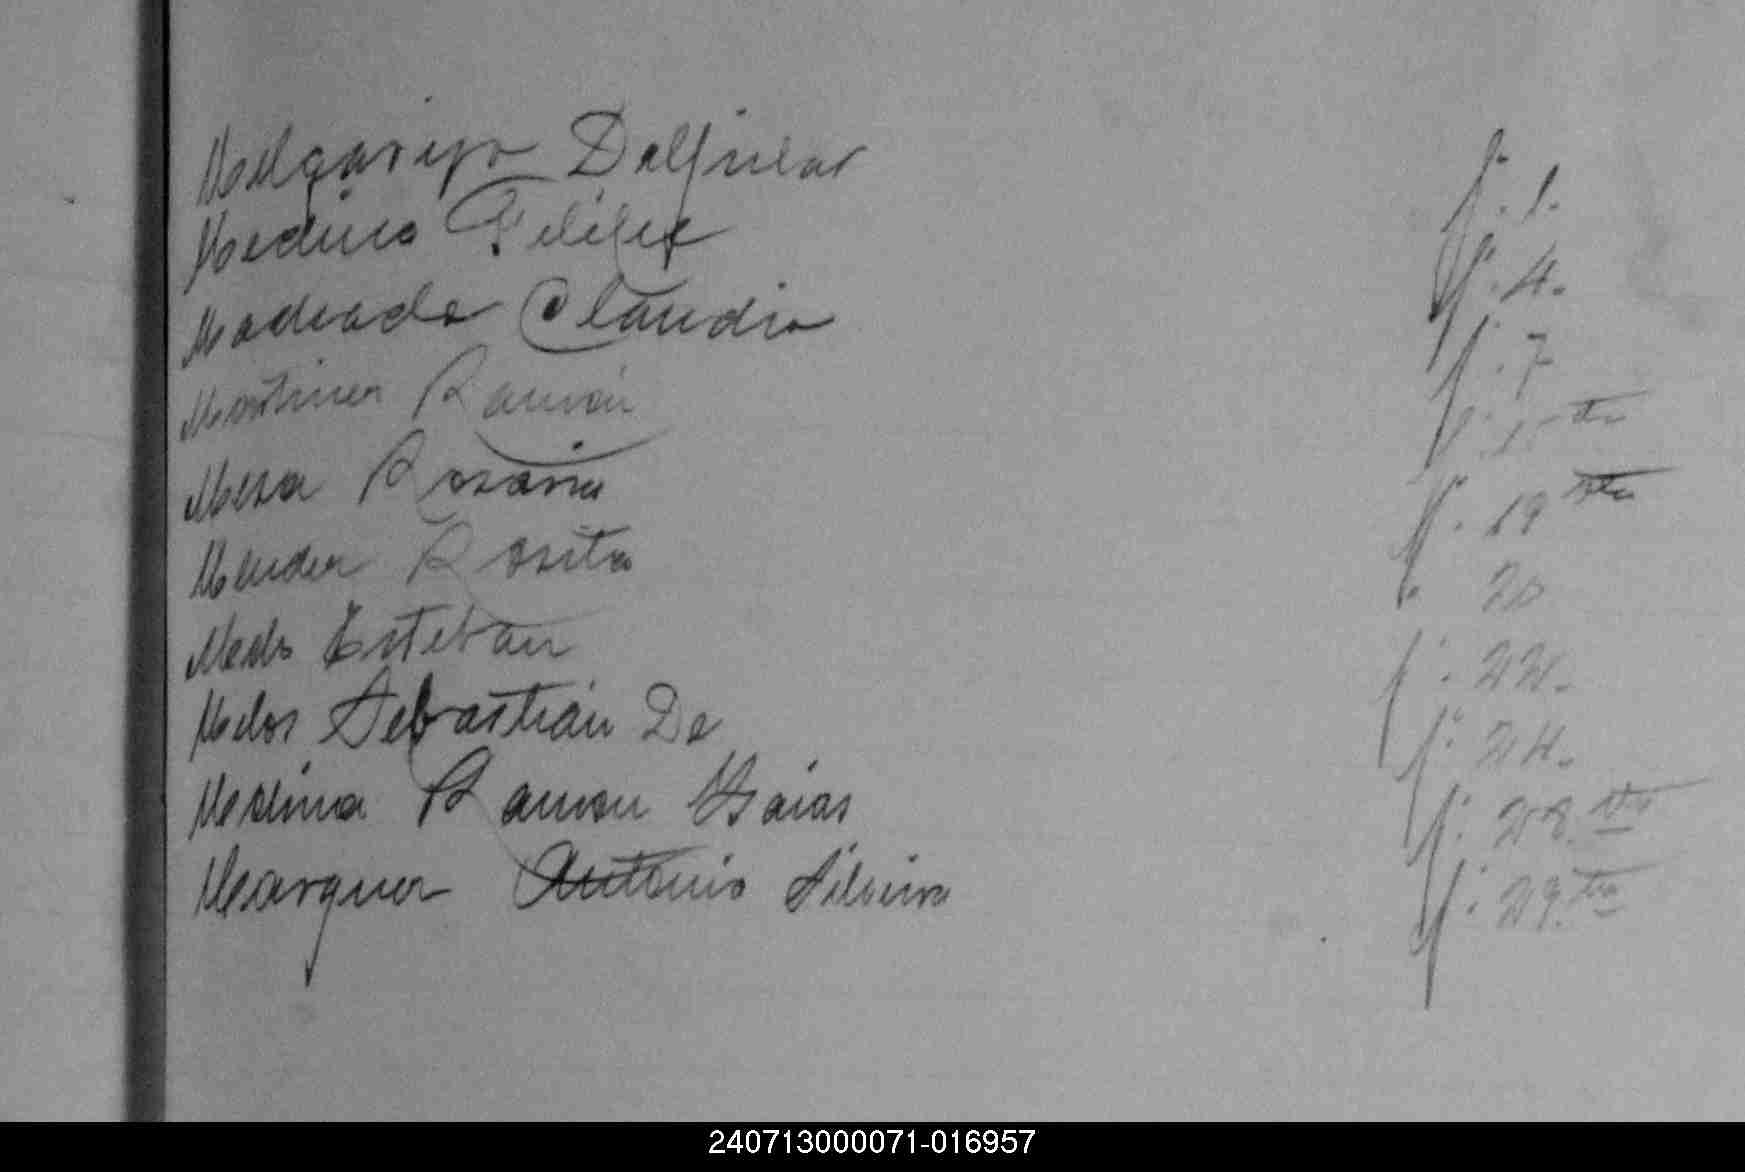 Melgarejo Delfina f. 1.
Medina Felipe f. 4.
Madrada Claudio f. 7
Martinez Ramón f. 15 vta
Meza Rosario f. 19 vta
Mendez Rosita " 20
Melo Esteban f. 22.
Melos Sebastián De f. 24.
Medina Ramon Isaias f. 28. vta
Marquez Antonio Silveira f. 29. vta
240713000071-016957